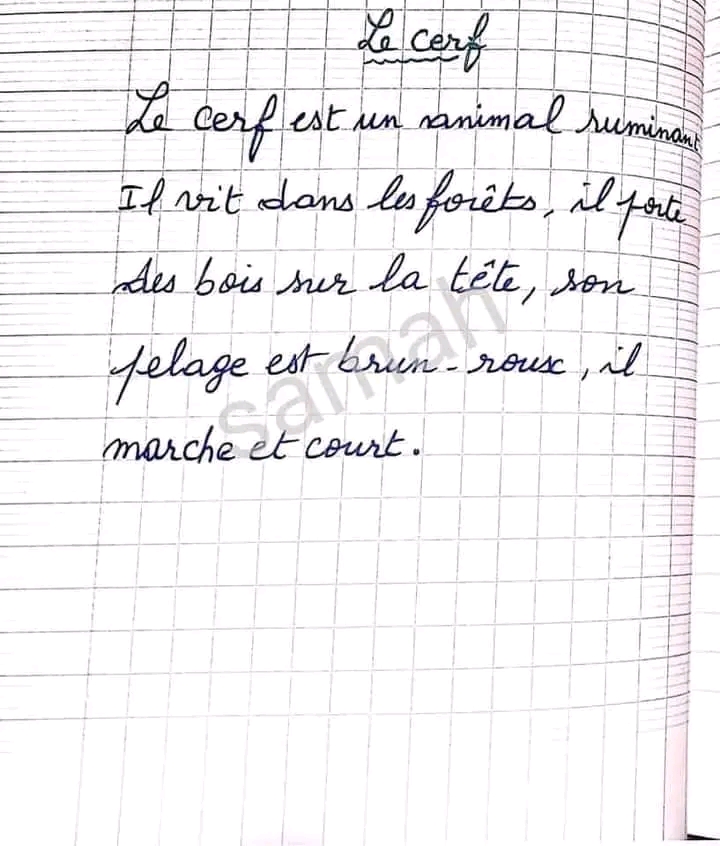 Le cerf
Le cerf est un animal ruminant
Il vit dans les forêts, il porte
des bois sur la tête, son
pelage est brun-roux, il
marche et court.
samah